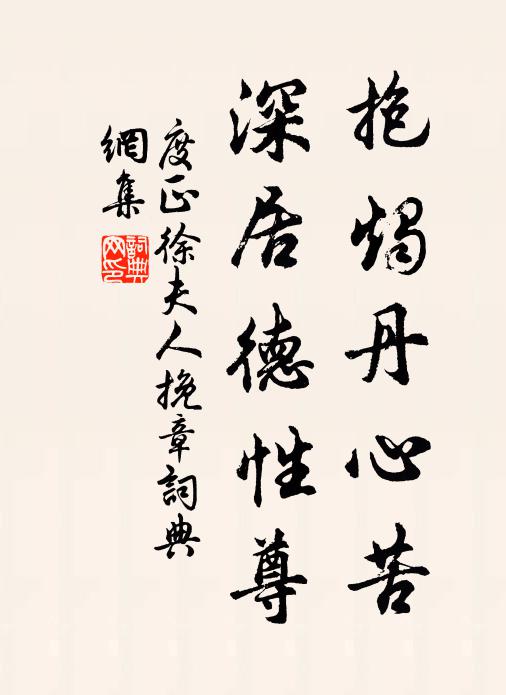 抱燭丹心苦
深居德性尊
度正徐夫人挽章詞典
網集
詞典網印